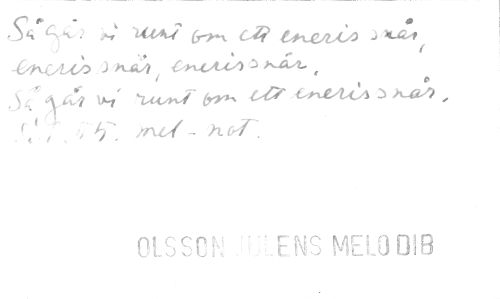 Så går vi runt om ett eneris snår,
eneris snår, eneris snår,
Så går vi runt om ett eneris snår.
mel - not.
OLSSON JULENS MELODIB